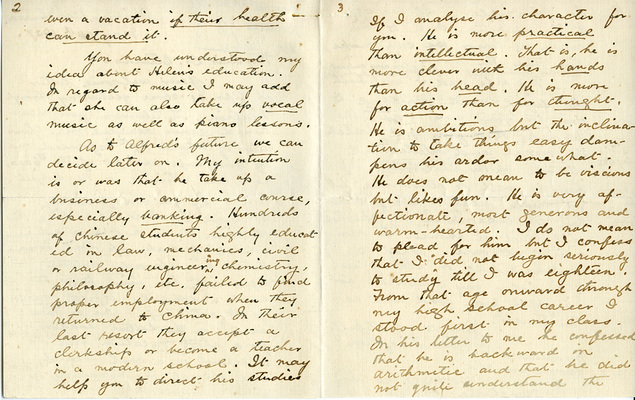 2
even a vacation if their health
can stand it.
You have understood my
idea about Helen's education.
In regard to music I may add
that she can also take up vocal
music as well as piano lessons.
As to Alfred's future we can
decide later on. My intention
is or was that he take up a
business or commercial course,
especially banking. Hundreds
of Chinese students highly educat-
ed in law, mechanics, civil
or railway engineering, chemistry,
philosophy, etc. failed to find
proper employment when they
returned to China. In their
last resort they accept a
clerkship or become a teacher
in a modern school. It may
help you to direct his studies
3
If I analyse his character for
you. He is more practical
than intellectual. That is, he is
more clever with his hands
than his head. He is more
for action than for thought.
He is ambitious but the inclina-
tion to take things easy dam-
pens his ardor somewhat.
He does not mean to be viscious
but likes fun. He is very af-
fectionate, most generous and
warm-hearted. I do not mean
to plead for him but I confess
that I did not begin seriously
to "study" till I was eighteen.
From that age onward through
my high school career I
stood first in my class.
In his letter to me he confessed
that he is backward on
arithmetic and that he did
not quite understand the